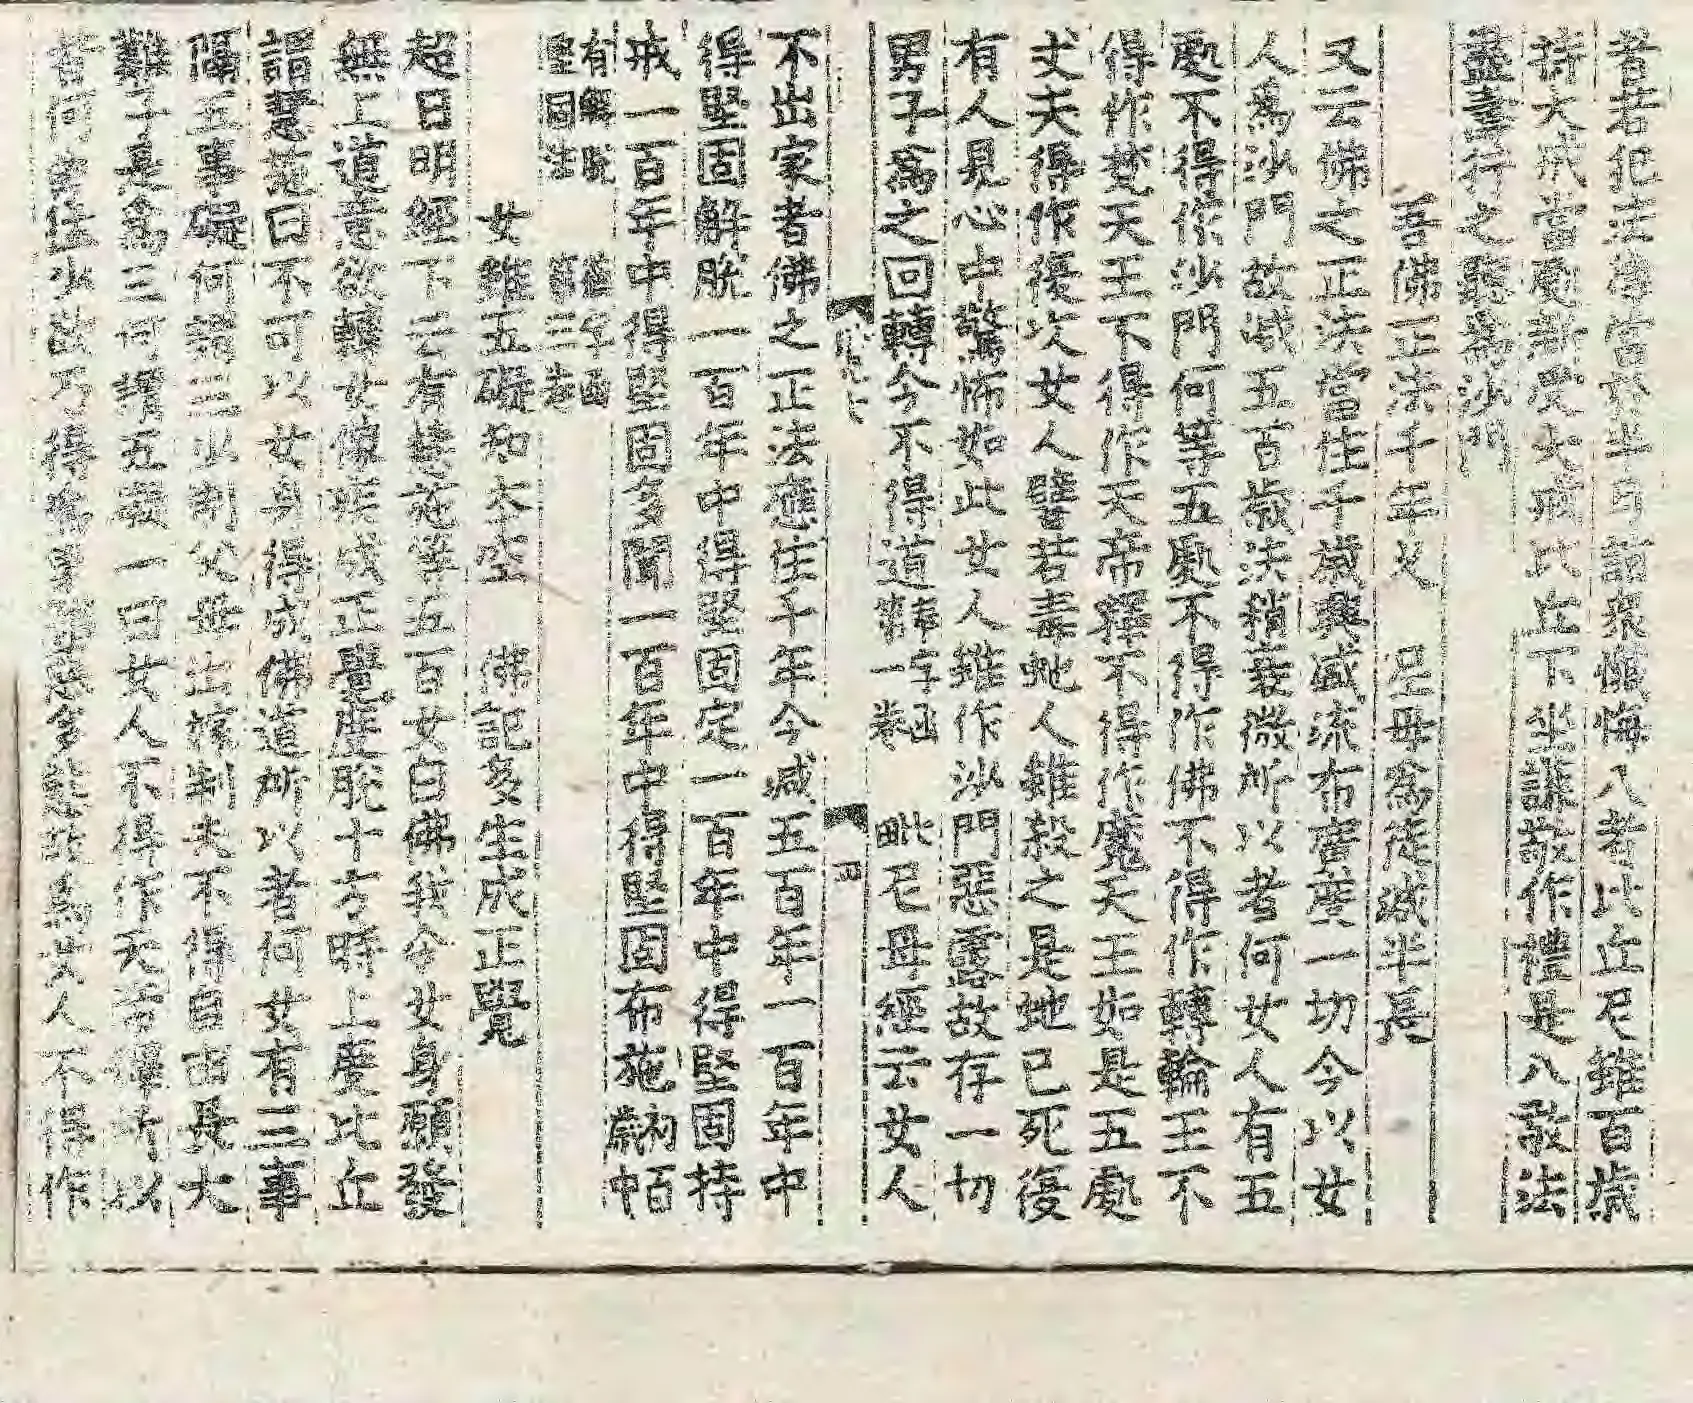 者若犯法律當於半月詣衆懺悔八者比丘尼雖百歲
持大戒當處新受大戒比丘下坐謙敬作禮是八敬法
盡壽行之聽爲沙門
吾佛正法千年久　足毋爲徒減半長
又云佛之正法當住千歲興盛流布齎䕃一切今以女
人爲沙門故減五百歲法稍衰微所以者何女人有五
處不得作沙門何等五處不得作佛不得作轉輪王不
得作梵天王下得作天帝釋不得作魔天王如是五處
丈夫得作復次女人譬若毒虵人雖殺之是虵已死復
有人見心中驚怖如此女人雖作沙門惡露故存一切
男子爲之回轉令不得道
字函
一卷
毗尼母經云女人
不出家者佛之正法應住千年今减五百年一百年中
得堅固解脫一百年中得堅固定一百年中得堅固持
戒一百年中得堅固多聞一百年中得堅固布施
有解脫
堅固法
字函
三卷
女雖五礙知太空　佛記多生成正覺
超日明經下云有慧施等五百女白佛我今女身願發
無上道意欲轉女像疾成正覺度脫十方時上度比丘
謂慧施曰不可以女身得成佛道所以者何女有三事
隔五事礙何謂三少制父母出嫁制夫不得自由長大
難子是爲三何謂五礙一曰女人不得作天帝釋所以
者何勇猛少欲乃得爲男
爲女人不得作